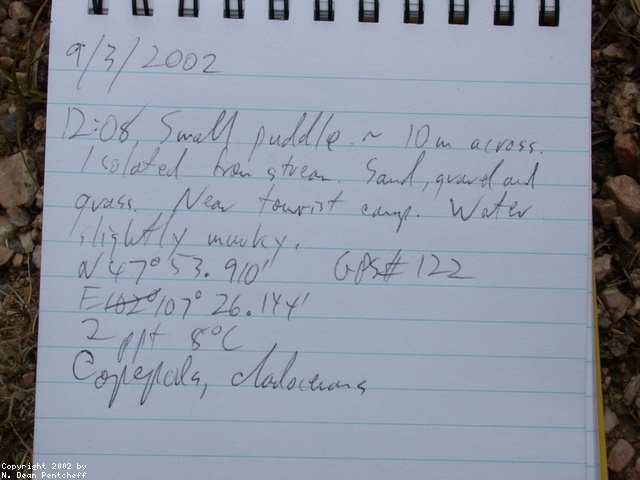 9/3/2002
12:08 Small puddle ~ 10m across.
Isolated from stream. Sand, gravel and
grass. Near tourist camp. Water
slightly murky.
N 47° 53.910' GPS# 122
E 102° 107° 26.144'
2 ppt 8°C
Copepods, cladocerans
Copyright 2002 by
N. Dean Pentcheff